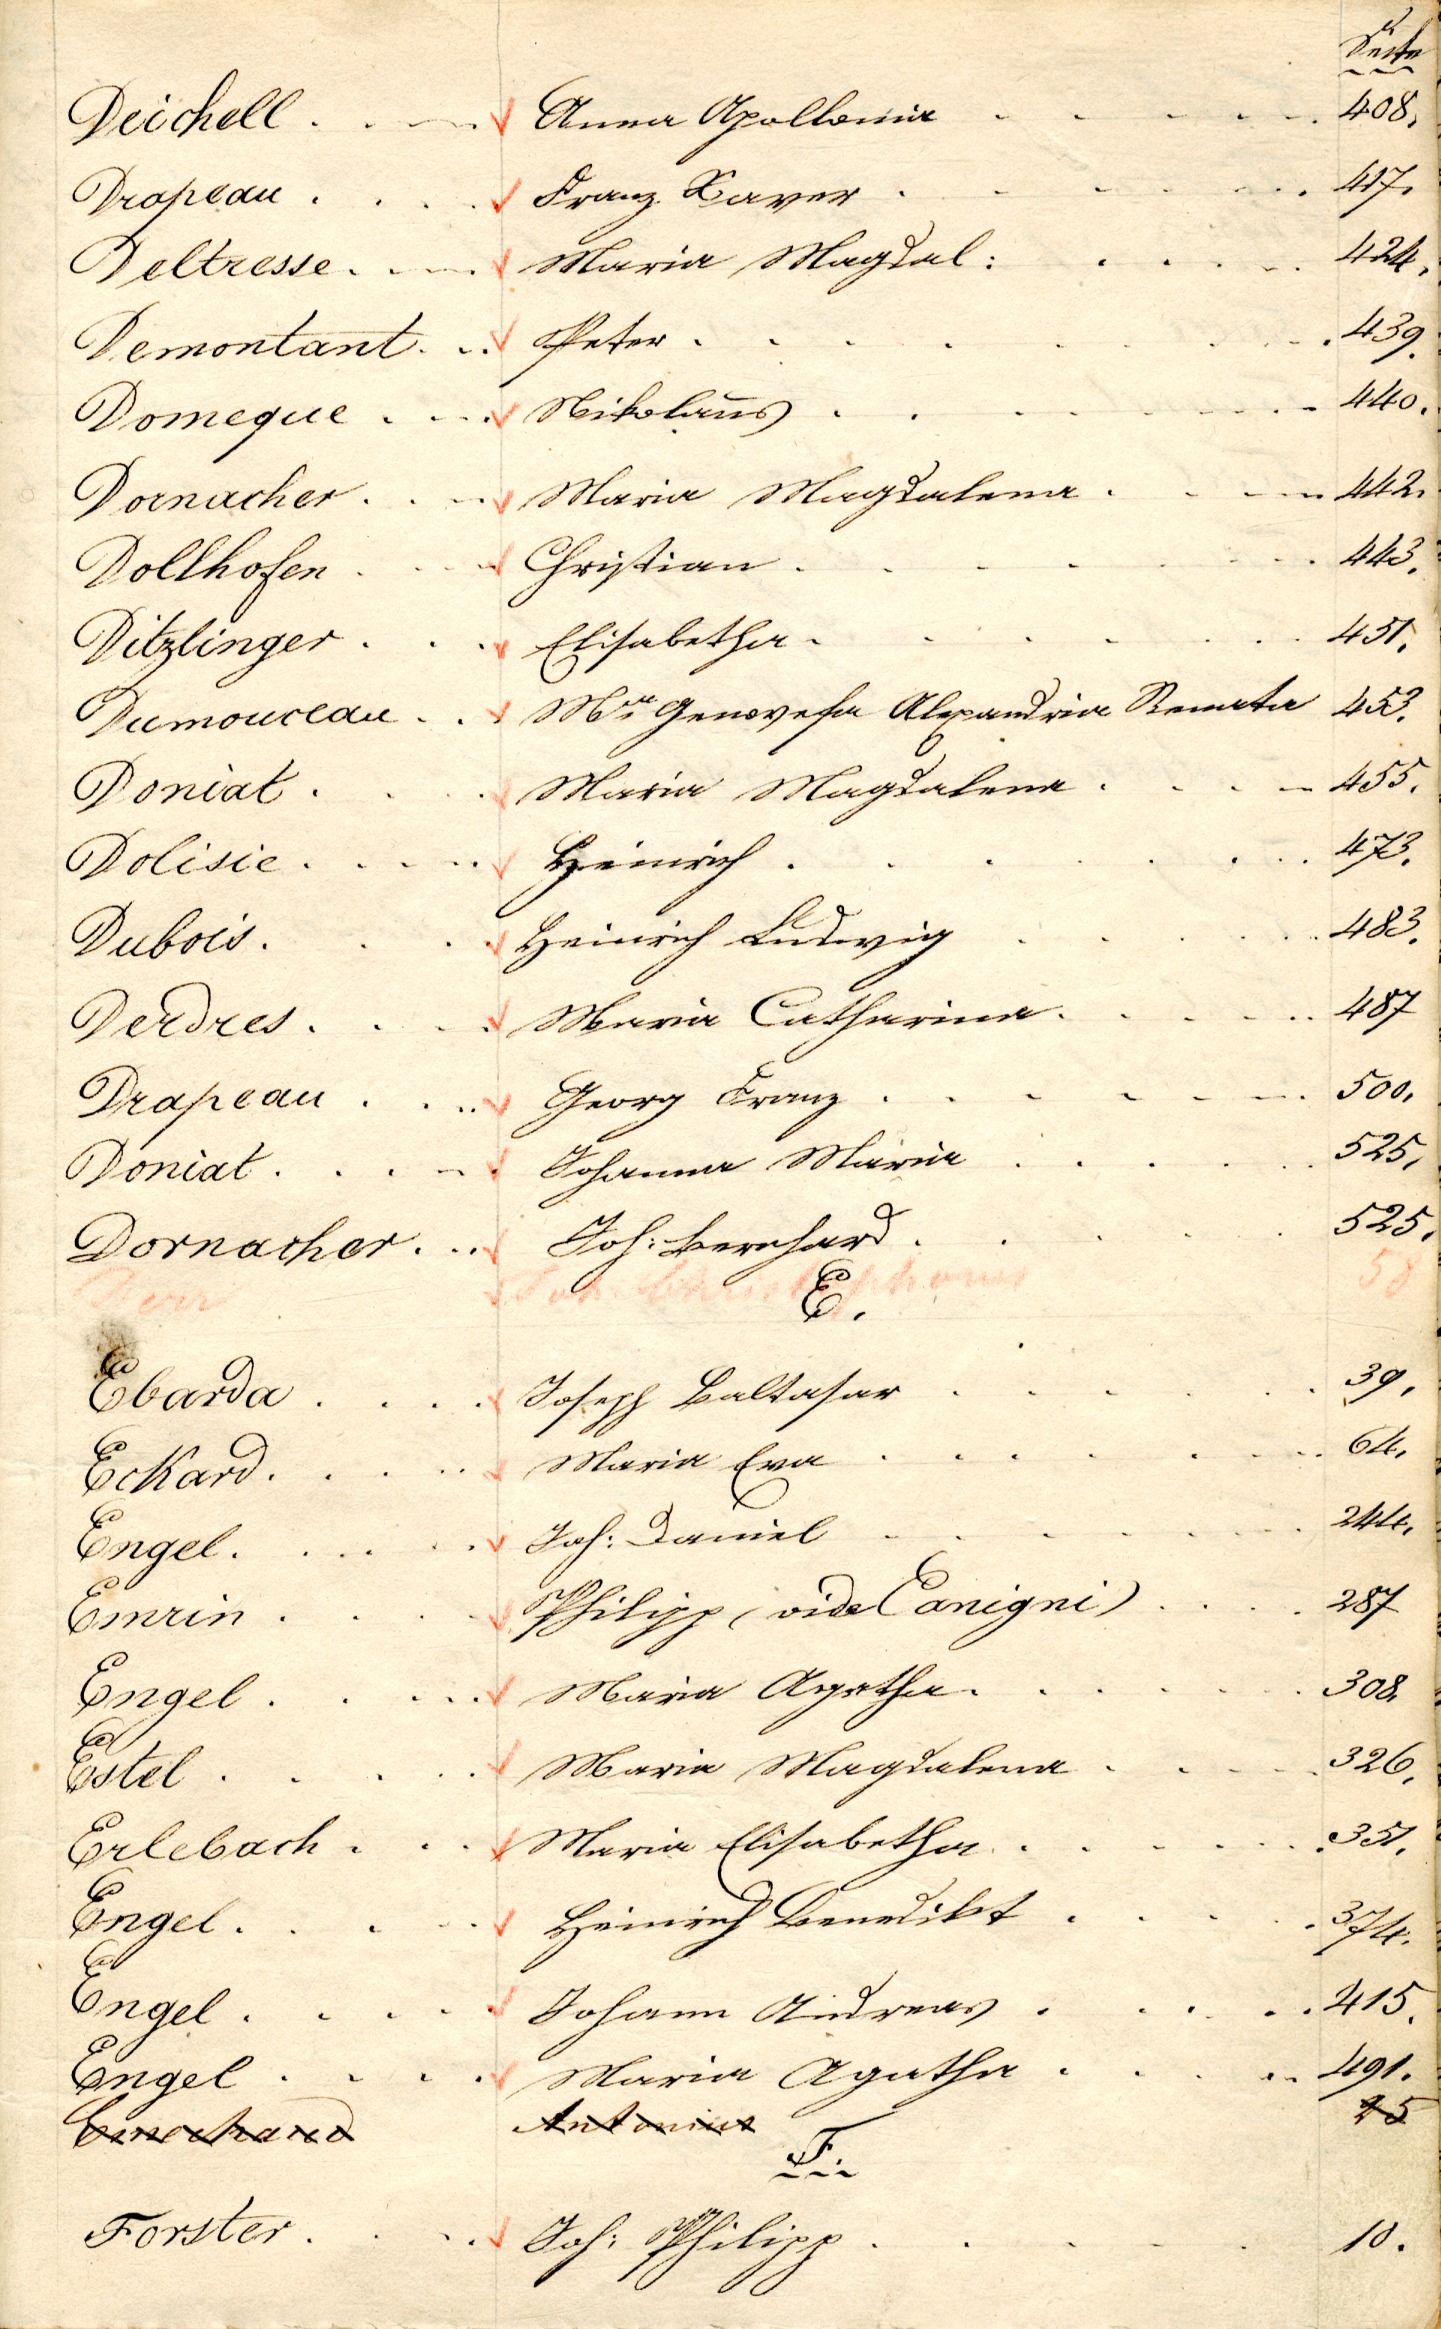 Seite
Deichell . . . Anna Apollonia . . . 408.
Drapeau . . . Franz Xaver . . . 417.
Deltresse . . . Maria Magdal: . . . 424.
Demontant . . . Peter . . . 439.
Domeque . . . Nikolaus . . . 440.
Dornacher . . . Maria Magdalena . . . 442.
Dollhofen . . . Christian . . . 443.
Ditzlinger . . . Elisabetha . . . 451.
Dumouceau . . . Mra Genovefa Alexandria Renata 453.
Doniat . . . Maria Magdalena . . . 455.
Dolisie . . . Heinrich . . . 473.
Dubois . . . Heinrich Ludwig . . . 483.
Derdres . . . Maria Catharina . . . 487
Drapeau . . . Georg Franz . . . 500.
Doniat . . . Johanna Maria . . . 525.
Dornacher . . . Joh: Bernhard . . . 525.
Joh. Christophorus 58
E.
Ebarda . . . Joseph Baltasar . . . 39.
Eckard . . . Maria Eva . . . 64.
Engel . . . Joh: Daniel . . . 244.
Emrin . . . Philipp (vide Canigni) . . . 287
Engel . . . Maria Agatha . . . 308.
Estel . . . Maria Magdalena . . . 326.
Erlebach . . . Maria Elisabetha . . . 351.
Engel . . . Heinrich Benedikt . . . 374.
Engel . . . Johann Andreas . . . 415.
Engel . . . Maria Agatha . . . 491.
Antonius 25
F.
Forster . . . Joh: Philipp . . . 10.